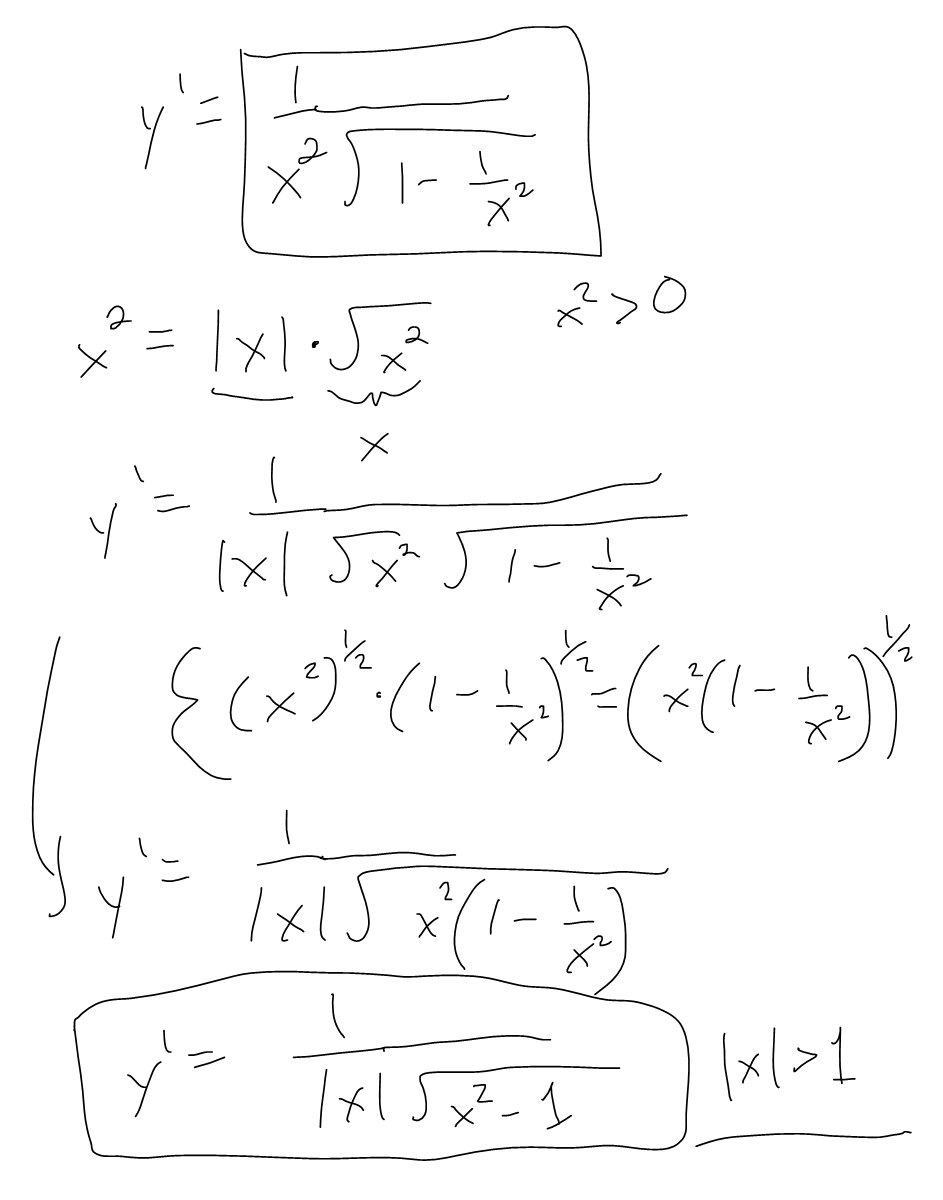 y' = 1/(x²√(1 - 1/x²))
x² = |x| · √x²    x² > 0
x
y' = 1/(|x| √x² √(1 - 1/x²))
{ (x²)^(1/2) · (1 - 1/x²)^(1/2) = (x²(1 - 1/x²))^(1/2)
y' = 1/(|x|√(x²(1 - 1/x²)))
y' = 1/(|x|√(x² - 1))    |x| > 1